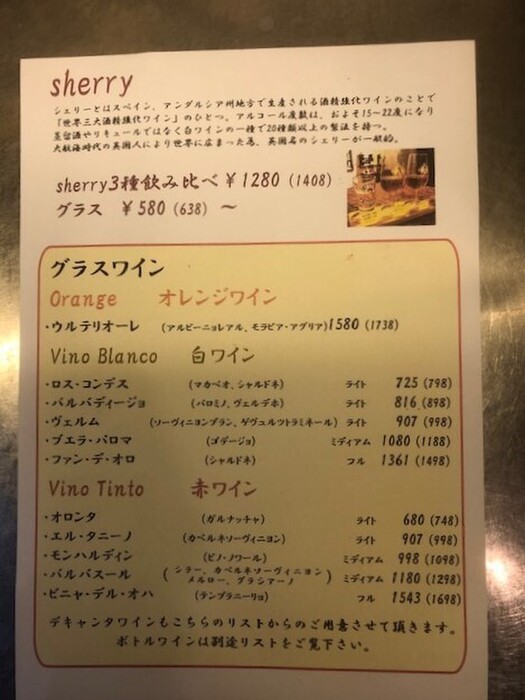 sherry
シェリーとはスペイン、アンダルシア州地方で生産される酒精強化ワインのことで
「世界三大酒精強化ワイン」のひとつ。アルコール度数は、およそ15〜22度になり
蒸留酒やリキュールではなく白ワインの一種で20種類以上の製法を持つ。
大航海時代の英国人により世界に広まった為、英国名のシェリーが一般的。
sherry3種飲み比べ ¥1280 (1408)
グラス ¥580 (638) 〜
グラスワイン
Orange オレンジワイン
・ウルテリオーレ (アルビーニョレアル、モラビア・アグリア) 1580 (1738)
Vino Blanco 白ワイン
・ロス・コンデス (マカベオ、シャルドネ) ライト 725 (798)
・バルバディージョ (パロミノ、ヴェルデホ) ライト 816 (898)
・ヴェルム (ソーヴィニヨンブラン、ゲヴュルツトラミネール) ライト 907 (998)
・プエラ・パロマ (ゴデージョ) ミディアム 1080 (1188)
・ファン・デ・オロ (シャルドネ) フル 1361 (1498)
Vino Tinto 赤ワイン
・オロンタ (ガルナッチャ) ライト 680 (748)
・エル・タニーノ (カベルネソーヴィニヨン) ライト 907 (998)
・モンハルディン (ピノ・ノワール) ミディアム 998 (1098)
・バルバスール (シラー、カベルネソーヴィニヨン メルロー、グラシアーノ) ミディアム 1180 (1298)
・ビニャ・デル・オハ (テンプラニーリョ) フル 1543 (1698)
デキャンタワインもこちらのリストからのご用意させて頂きます。
ボトルワインは別途リストをご覧下さい。